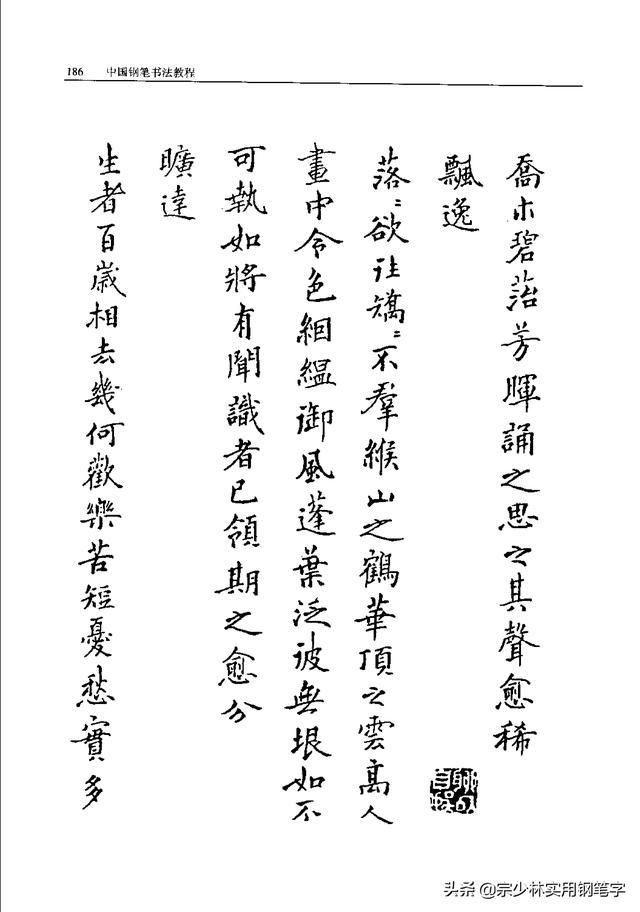 186 中国钢笔书法教程
喬木碧菭芳暉誦之思之其聲愈稀
飄逸
落〻欲往矯〻不羣緱山之鶴華頂之雲高人
畫中令色絪緼御風蓬葉泛彼無垠如不
可執如將有聞識者已領期之愈分
曠達
生者百歲相去幾何歡樂苦短憂愁實多
聊以自娛
头条 @宗少林实用钢笔字